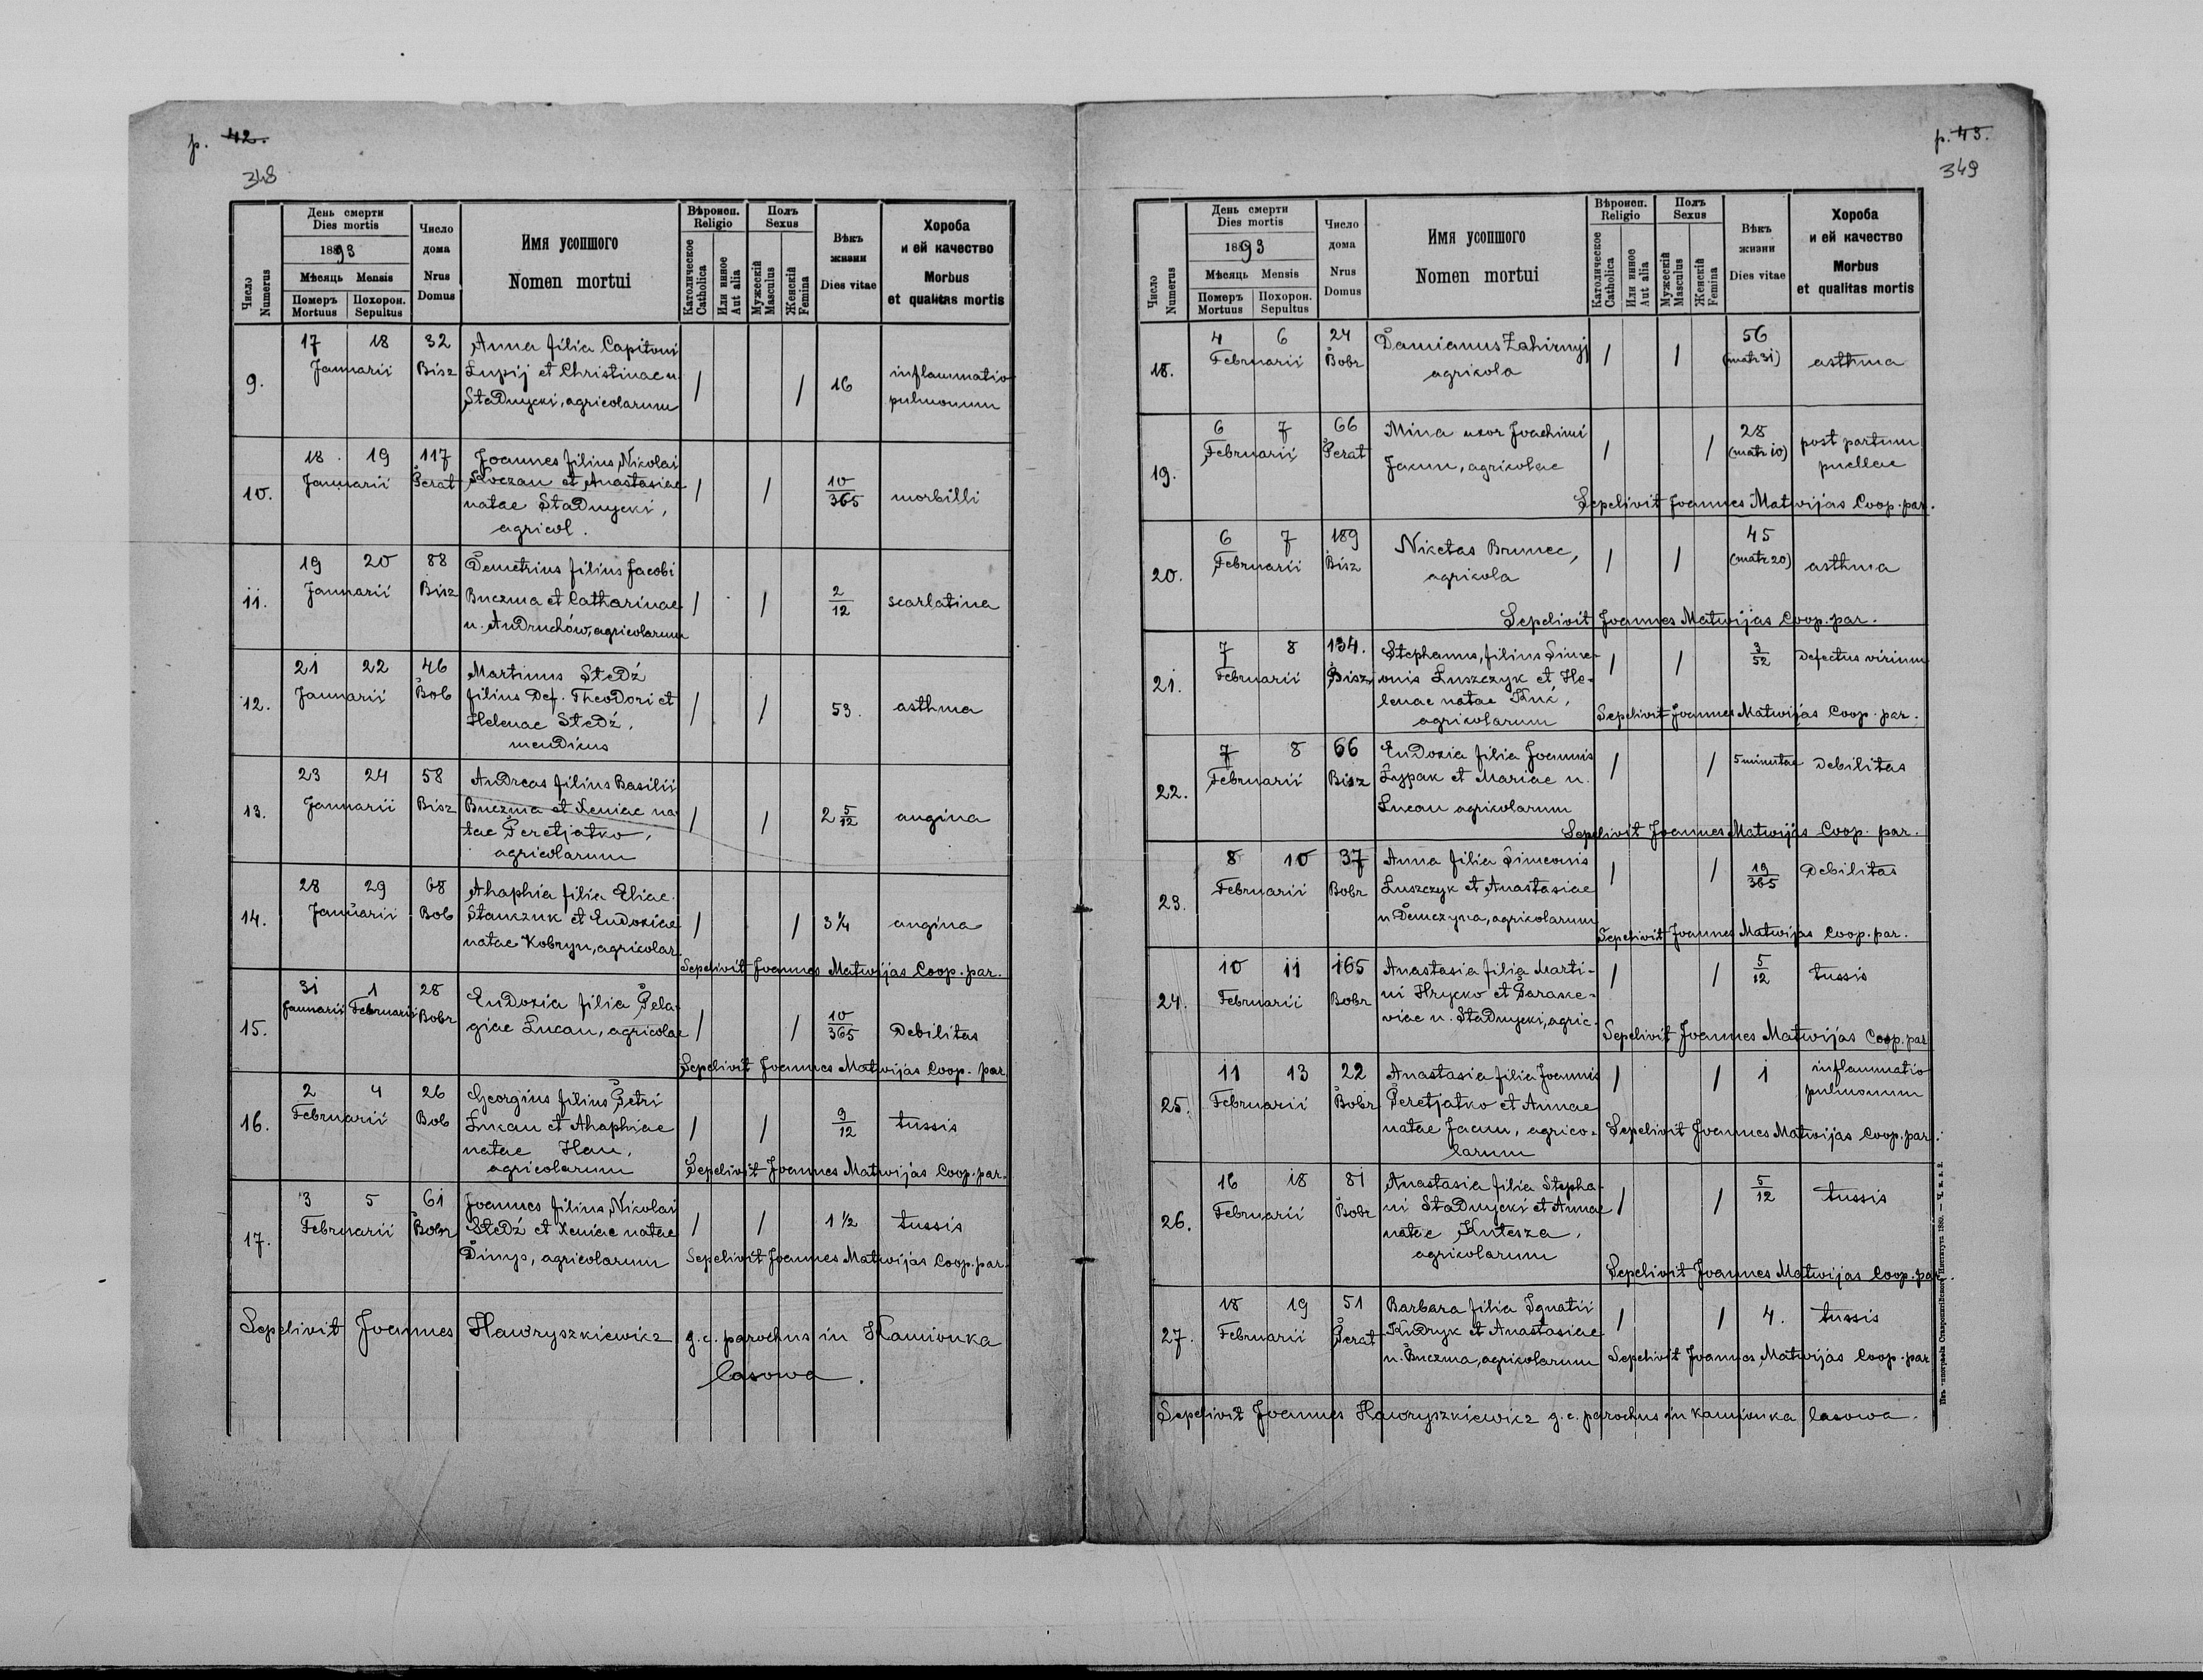 p. 42.
348
Число Numerus
День смерти
Dies mortis
1893
Мѣсяць Mensis
Померъ Mortuus
Похорон. Sepultus
Число дома
Nrus Domus
Имя усопшого
Nomen mortui
Вѣроисп. Religio
Католическое Catholica
Или инное Aut alia
Полъ Sexus
Мужескій Masculus
Женскій Femina
Вѣкъ жизни
Dies vitae
Хороба и ей качество
Morbus et qualitas mortis
9. 17 18 Januarii 32 Bisz
Anna filia Capitoni
Lupij et Christinae n.
Stadnycki, agricolarum
/ / 16 inflammatio pulmonum
10. 18 19 Januarii 117 Perat
Joannes filius Nikolai
Koczan et Anastasiae
natae Stadnycki,
agricol.
/ / 10/365 morbilli
11. 19 20 Januarii 88 Bisz
Demetrius filius Jacobi
Buczma et Catharinae
n. Andruchów, agricolarum
/ / 2/12 scarlatina
12. 21 22 Januarii 46 Bob
Martinus Stedź
filius def. Theodori et
Helenae Stedź,
mendicus
/ / 53. asthma
13. 23 24 Januarii 58 Bisz
Andreas filius Basilii
Buczma et Xeniae na-
tae Peretjatko,
agricolarum
/ / 2 5/12 angina
14. 28 29 Januarii 68 Bob
Ahaphia filia Eliae
Stanczuk et Eudoxiae
natae Kobryn, agricolar.
/ / 3 1/4 angina
Sepelivit Joannes Matwijas Coop. par.
15. 31 Januarii 1 Februarii 28 Bobr
Eudoxia filia Pela-
giae Lucan, agricolae
/ / 10/365 debilitas
Sepelivit Joannes Matwijas Coop. par
16. 2 4 Februarii 26 Bob
Georgius filius Petri
Lucan et Ahaphiae
natae Han,
agricolarum
/ / 9/12 tussis
Sepelivit Joannes Matwijas Coop. par.
17. 3 5 Februarii 61 Bobr
Joannes filius Nikolai
Stedź et Xeniae natae
Dimyo, agricolarum
/ / 1 1/2 tussis
Sepelivit Joannes Matwijas Coop. par.
Sepelivit Joannes Hawryszkiewicz g. c. parochus in Kamionka
lasowa.
p. 43.
349
Число Numerus
День смерти
Dies mortis
1893
Мѣсяць Mensis
Померъ Mortuus
Похорон. Sepultus
Число дома
Nrus Domus
Имя усопшого
Nomen mortui
Вѣроисп. Religio
Католическое Catholica
Или инное Aut alia
Полъ Sexus
Мужескій Masculus
Женскій Femina
Вѣкъ жизни
Dies vitae
Хороба и ей качество
Morbus et qualitas mortis
18. 4 6 Februarii 24 Bobr
Damianus Zahirnyj
agricola
/ / 56 (matr 31) asthma
19. 6 7 Februarii 66 Perat
Mina uxor Joachimi
Jacun, agricolae
/ / 28 (matr 10) post partum puellae
Sepelivit Joannes Matwijas Coop. par.
20. 6 7 Februarii 189 Bisz
Niketas Brunec,
agricola
/ / 45 (matr 20) asthma
Sepelivit Joannes Matwijas Coop. par.
21. 7 8 Februarii 134. Bisz
Stephanus, filius Sime-
onis Luszczyk et He-
lenae natae Kuć,
agricolarum
/ / 3/52 defectus virium
Sepelivit Joannes Matwijas Coop. par.
22. 7 8 Februarii 66 Bisz
Eudoxia filia Joannis
Łypak et Mariae n.
Lucan agricolarum
/ / 5 minutae debilitas
Sepelivit Joannes Matwijas Coop. par.
23. 8 10 Februarii 37 Bobr
Anna filia Simeonis
Luszczyk et Anastasiae
n. Demczyna, agricolarum
/ / 19/365 debilitas
Sepelivit Joannes Matwijas Coop. par.
24. 10 11 Februarii 165 Bobr
Anastasia filia Marti-
ni Hrycko et Paraske-
viae n. Stadnycki, agric.
/ / 5/12 tussis
Sepelivit Joannes Matwijas Coop. par
25. 11 13 Februarii 22 Bobr
Anastasia filia Joannis
Peretjatko et Annae
natae Jacun, agrico-
larum
/ / 1 inflammatio pulmonum
Sepelivit Joannes Matwijas Coop. par.
26. 16 18 Februarii 81 Bobr
Anastasia filia Stepha-
ni Stadnycki et Annae
natae Kutesza,
agricolarum
/ / 5/12 tussis
Sepelivit Joannes Matwijas Coop. par.
27. 18 19 Februarii 51 Perat
Barbara filia Ignatii
Kudryk et Anastasiae
n. Buczma, agricolarum
/ / 4. tussis
Sepelivit Joannes Matwijas Coop. par
Sepelivit Joannes Hawryszkiewicz g. c. parochus in Kamionka lasowa.
Изъ типографіи Ставропигійского Института 1889. — Ч. к. з. 2.